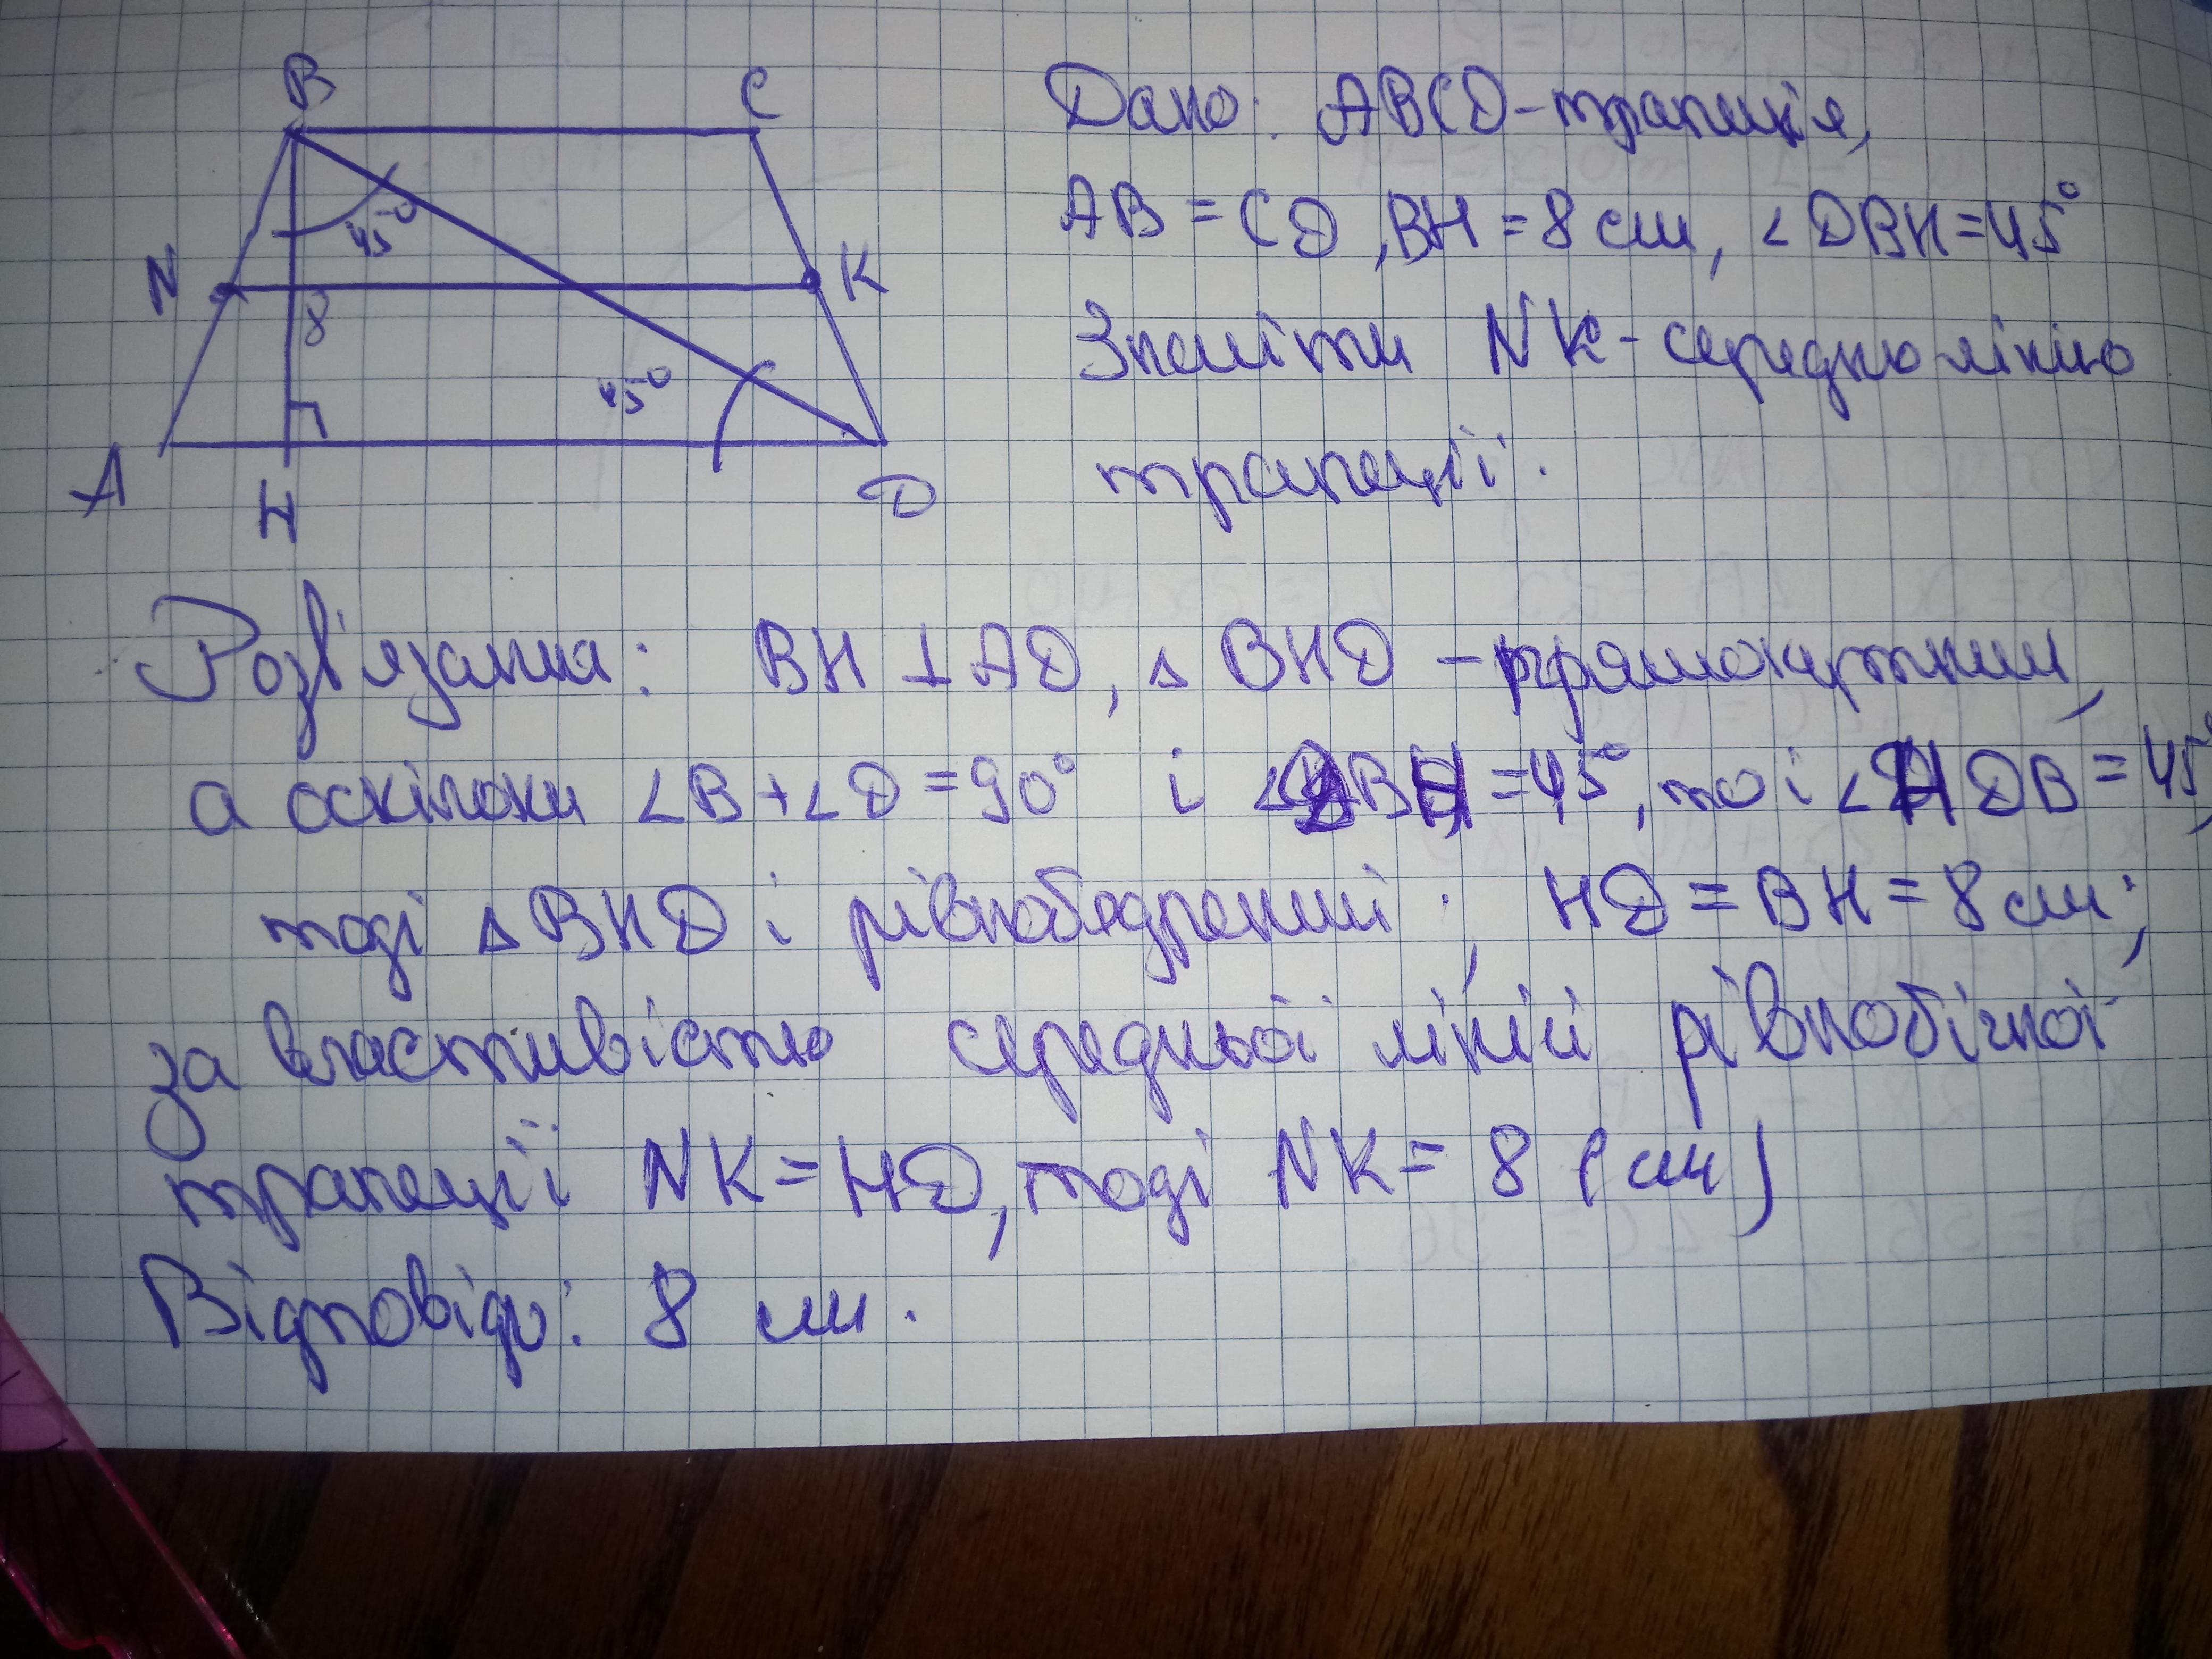 B C
N K
A H D
45°
8
45°
Дано: ABCD-трапеція,
AB = CD, BH = 8 см, ∠DBH = 45°
Знайти NK - середню лінію
трапеції.
Розв'язання: BH ⊥ AD, △ BHD - прямокутний,
а оскільки ∠B + ∠D = 90° і ∠DBH = 45°, то і ∠HDB = 45°,
тоді △ BHD і рівнобедрений; HD = BH = 8 см;
за властивістю середньої лінії рівнобічної
трапеції NK = HD, тоді NK = 8 (см)
Відповідь: 8 см.